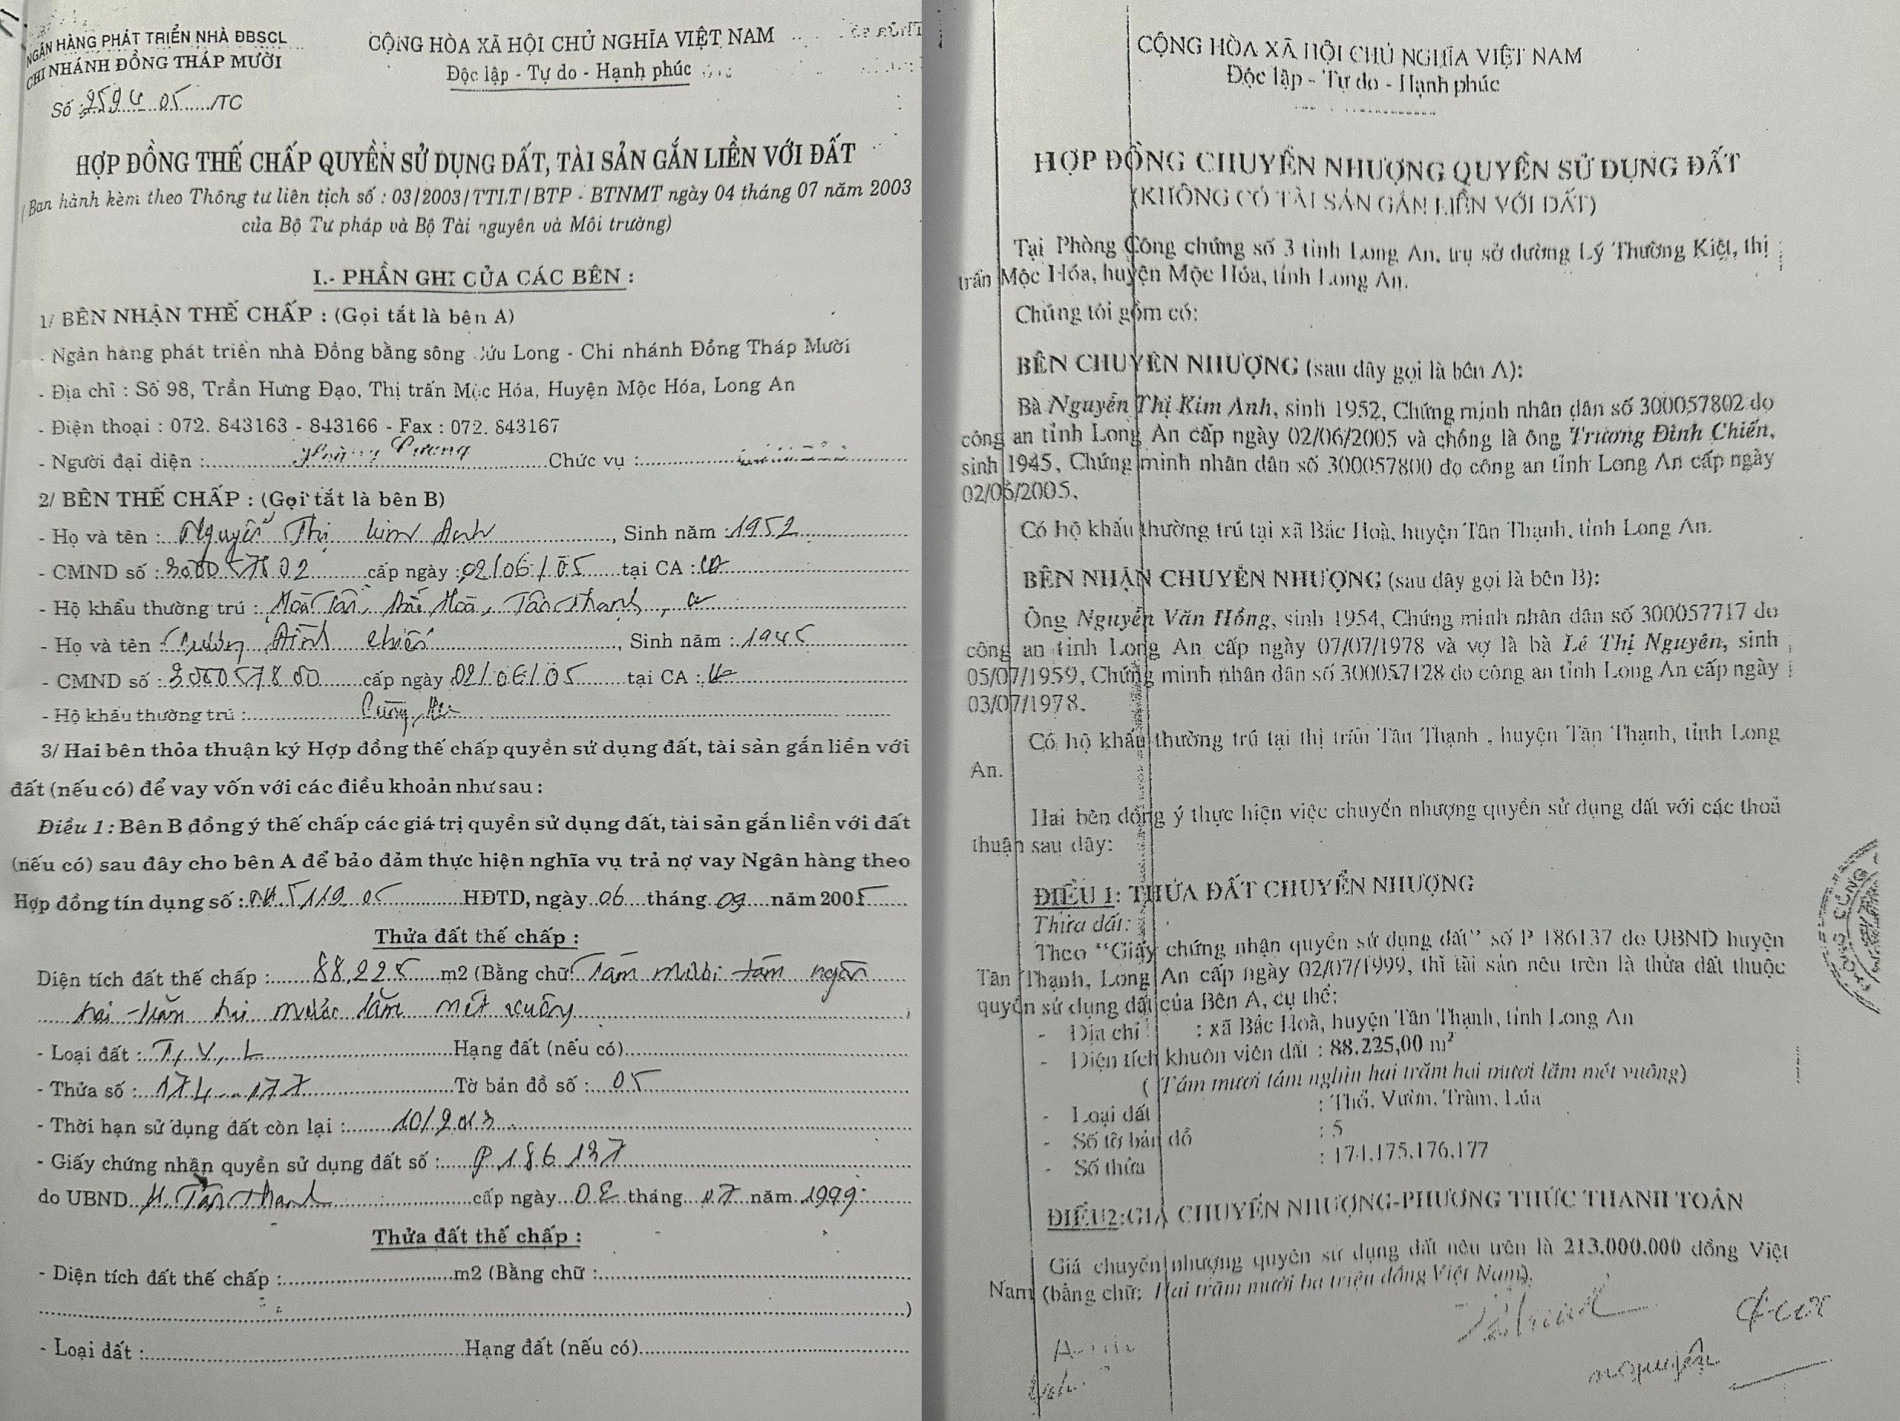 NGÂN HÀNG PHÁT TRIỂN NHÀ ĐBSCL
CHI NHÁNH ĐỒNG THÁP MƯỜI
Số : 2594 05 /TC
CỘNG HÒA XÃ HỘI CHỦ NGHĨA VIỆT NAM
Độc lập - Tự do - Hạnh phúc
HỢP ĐỒNG THẾ CHẤP QUYỀN SỬ DỤNG ĐẤT, TÀI SẢN GẮN LIỀN VỚI ĐẤT
(Ban hành kèm theo Thông tư liên tịch số : 03/2003/TTLT/BTP - BTNMT ngày 04 tháng 07 năm 2003
của Bộ Tư pháp và Bộ Tài nguyên và Môi trường)
I.- PHẦN GHI CỦA CÁC BÊN :
1/ BÊN NHẬN THẾ CHẤP : (Gọi tắt là bên A)
- Ngân hàng phát triển nhà Đồng bằng sông Cửu Long - Chi nhánh Đồng Tháp Mười
- Địa chỉ : Số 98, Trần Hưng Đạo, Thị trấn Mộc Hóa, Huyện Mộc Hóa, Long An
- Điện thoại : 072. 843163 - 843166 - Fax : 072. 843167
- Người đại diện : Chức vụ :
2/ BÊN THẾ CHẤP : (Gọi tắt là bên B)
- Họ và tên : Nguyễn Thị Kim Anh, Sinh năm : 1952
- CMND số : 300057802 cấp ngày : 02/06/05 tại CA : LA
- Hộ khẩu thường trú : Bắc Hoà, Tân Thạnh, LA
- Họ và tên Trương Đình Chiến, Sinh năm : 1945
- CMND số : 300057800 cấp ngày 02/06/05 tại CA : LA
- Hộ khẩu thường trú :
3/ Hai bên thỏa thuận ký Hợp đồng thế chấp quyền sử dụng đất, tài sản gắn liền với
đất (nếu có) để vay vốn với các điều khoản như sau :
Điều 1 : Bên B đồng ý thế chấp các giá trị quyền sử dụng đất, tài sản gắn liền với đất
(nếu có) sau đây cho bên A để bảo đảm thực hiện nghĩa vụ trả nợ vay Ngân hàng theo
Hợp đồng tín dụng số : HĐTD, ngày 06 tháng 09 năm 2005
Thửa đất thế chấp :
Diện tích đất thế chấp : 88.225 m2 (Bằng chữ Tám mươi tám ngàn
hai trăm hai mươi lăm mét vuông
- Loại đất : T, V, L Hạng đất (nếu có)
- Thửa số : 174 - 177 Tờ bản đồ số : 05
- Thời hạn sử dụng đất còn lại : 10/2013
- Giấy chứng nhận quyền sử dụng đất số : P 186137
do UBND H. Tân Thạnh cấp ngày 02 tháng 07 năm 1999
Thửa đất thế chấp :
- Diện tích đất thế chấp : m2 (Bằng chữ :
)
- Loại đất : Hạng đất (nếu có)
CỘNG HÒA XÃ HỘI CHỦ NGHĨA VIỆT NAM
Độc lập - Tự do - Hạnh phúc
HỢP ĐỒNG CHUYỂN NHƯỢNG QUYỀN SỬ DỤNG ĐẤT
(KHÔNG CÓ TÀI SẢN GẮN LIỀN VỚI ĐẤT)
Tại Phòng Công chứng số 3 tỉnh Long An, trụ sở đường Lý Thường Kiệt, thị
trấn Mộc Hóa, huyện Mộc Hóa, tỉnh Long An.
Chúng tôi gồm có:
BÊN CHUYỂN NHƯỢNG (sau đây gọi là bên A):
Bà Nguyễn Thị Kim Anh, sinh 1952, Chứng minh nhân dân số 300057802 do
công an tỉnh Long An cấp ngày 02/06/2005 và chồng là ông Trương Đình Chiến,
sinh 1945, Chứng minh nhân dân số 300057800 do công an tỉnh Long An cấp ngày
02/06/2005.
Có hộ khẩu thường trú tại xã Bắc Hoà, huyện Tân Thạnh, tỉnh Long An.
BÊN NHẬN CHUYỂN NHƯỢNG (sau đây gọi là bên B):
Ông Nguyễn Văn Hồng, sinh 1954, Chứng minh nhân dân số 300057717 do
công an tỉnh Long An cấp ngày 07/07/1978 và vợ là bà Lê Thị Nguyên, sinh
05/07/1959, Chứng minh nhân dân số 300057128 do công an tỉnh Long An cấp ngày
03/07/1978.
Có hộ khẩu thường trú tại thị trấn Tân Thạnh , huyện Tân Thạnh, tỉnh Long
An.
Hai bên đồng ý thực hiện việc chuyển nhượng quyền sử dụng đất với các thoả
thuận sau đây:
ĐIỀU 1: THỬA ĐẤT CHUYỂN NHƯỢNG
Thửa đất:
Theo “Giấy chứng nhận quyền sử dụng đất” số P 186137 do UBND huyện
Tân Thạnh, Long An cấp ngày 02/07/1999, thì tài sản nêu trên là thửa đất thuộc
quyền sử dụng đất của Bên A, cụ thể:
- Địa chỉ : xã Bắc Hoà, huyện Tân Thạnh, tỉnh Long An
- Diện tích khuôn viên đất : 88.225,00 m²
( Tám mươi tám nghìn hai trăm hai mươi lăm mét vuông)
- Loại đất : Thổ, Vườn, Tràm, Lúa
- Số tờ bản đồ : 5
- Số thửa : 174,175,176,177
ĐIỀU2:GIÁ CHUYỂN NHƯỢNG-PHƯƠNG THỨC THANH TOÁN
Giá chuyển nhượng quyền sử dụng đất nêu trên là 213.000.000 đồng Việt
Nam (bằng chữ: Hai trăm mười ba triệu đồng Việt Nam).
nguyên